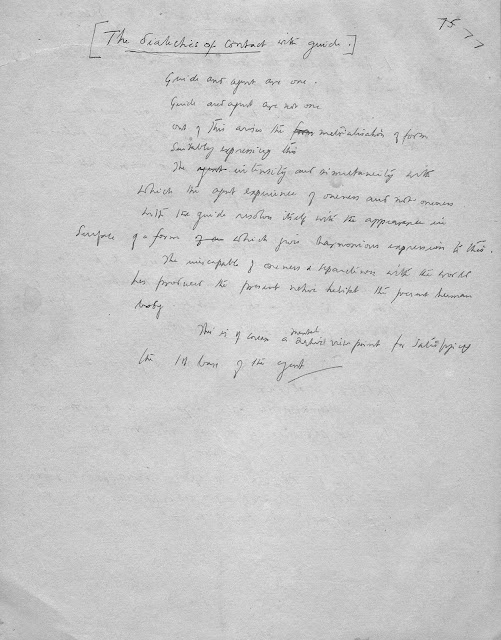 75 77
[The dialectics of contact with guide.]
Guide and agent are one.
Guide and agent are not one
out of this arises the form materialisation of form
Suitably expressing this
The agent intensity and simultaneity with
which the agent experience of oneness and not oneness
with the guide resolves itself with the appearance in
Surface of a form of which gives harmonious expression to this.
The inseparable of oneness & separateness with the world
has produced the present native habitat the present human
body
This is of course a mental viewpoint for
the of the agent